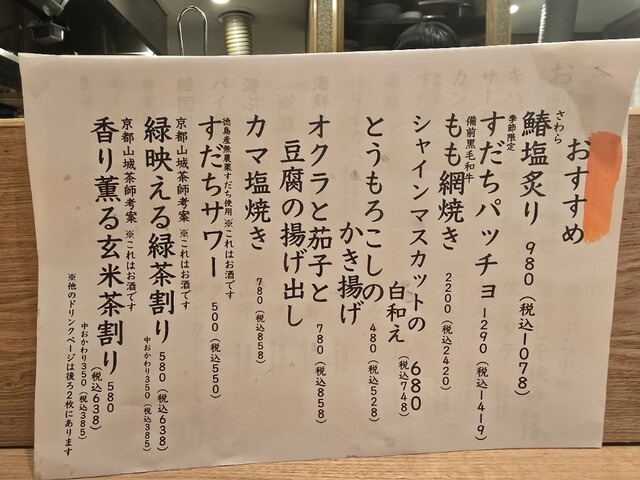 おすすめ
さわら
鰆塩炙り 980（税込1078）
季節限定
すだちパッチョ 1290（税込1419）
備前黒毛和牛
もも網焼き 2200（税込2420）
シャインマスカットの
白和え 680（税込748）
とうもろこしの
かき揚げ 480（税込528）
オクラと茄子と
豆腐の揚げ出し 780（税込858）
カマ塩焼き 780（税込858）
徳島産無農薬すだち使用※これはお酒です
すだちサワー 500（税込550）
京都山城茶師考案 ※これはお酒です
緑映える緑茶割り 580（税込638）
中おかわり350（税込385）
京都山城茶師考案 ※これはお酒です
香り薫る玄米茶割り 580（税込638）
中おかわり350（税込385）
※他のドリンクページは後ろ2枚にあります